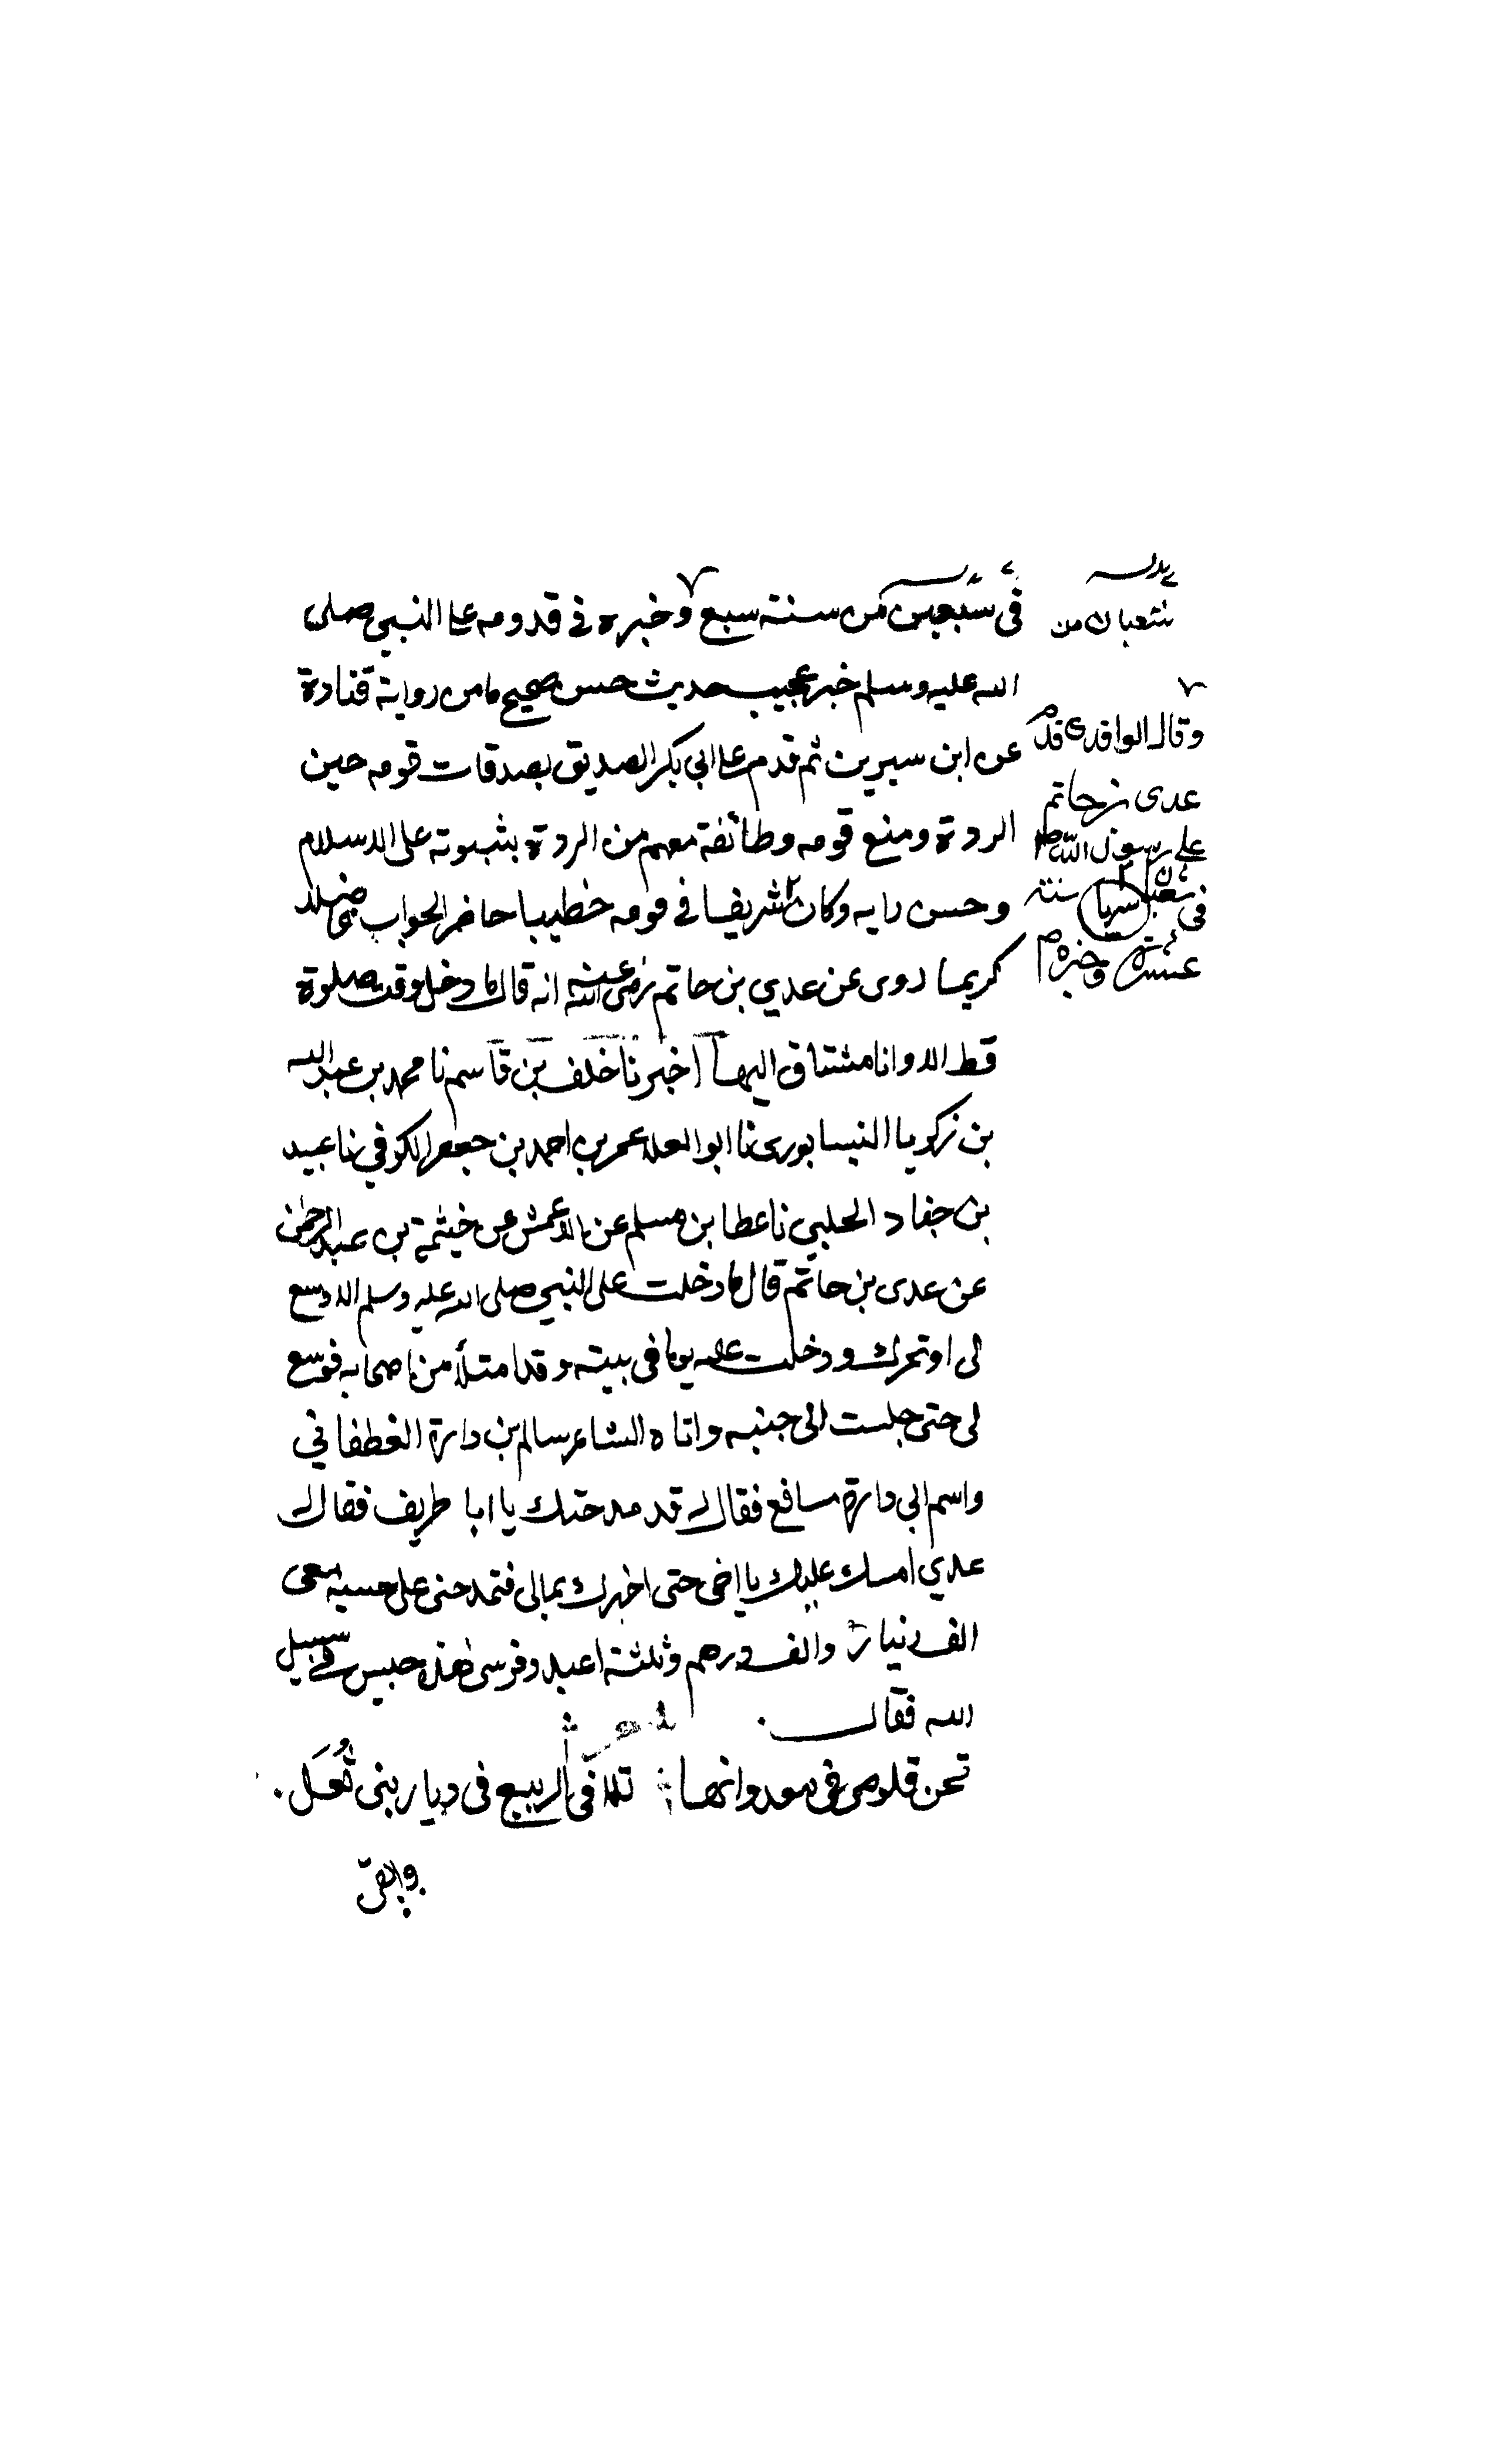 في سبعين من سنة سبع وخبره في قدومه على النبي صلى
الله عليه وسلم خبر عجيب حديث حسن صحيح من رواية قتادة
عن ابن سيرين ثم قدم على ابي بكر الصديق بصدقات قومه حين
الردة ومنع قومه وطائفة معهم من الردة بثبوته على الاسلام
وحسن رايه وكان شريفا في قومه خطيبا حاضر الجواب فاضلا
كريما روى عن عدي بن حاتم رضي الله عنه انه قال ما دخل وقت صلوة
قط الا وانا مشتاق اليها اخبرنا خلف بن قاسم نا محمد بن عبد الله
بن زكريا النيسابوري نا ابو العلا محمد بن احمد بن جعفر الكوفي نا عبيد
بن جناد الحلبي نا عطا بن مسلم عن الاعمش عن خيثمة بن عبد الرحمن
عن عدي بن حاتم قال ما دخلت على النبي صلى الله عليه وسلم الا وسع
لى او تحرك ودخلت عليه يوما في بيته وقد امتلأ من اصحابه فوسع
لى حتى جلست الى جنبه واتاه الشاعر سالم بن دارة الغطفاني
واسم ابي دارة مسافع فقال له قد مدحتك يا ابا طريف فقال له
عدي امسك عليك يا اخي حتى اخبرك بمالى فتمدحنى على حسبه معى
الف دينار والف درهم وثلثة اعبد وفرسى هذه حبيس في سبيل
الله فقال
تحن قلوصى في معد وانما تلاقى الربيع في ديار بنى ثعل
وابقى
بدله
شعبان من
وقال الواقدي قدم
عدى بن حاتم
على رسول الله صلعم
في شعبان سنة
عشر وخبره